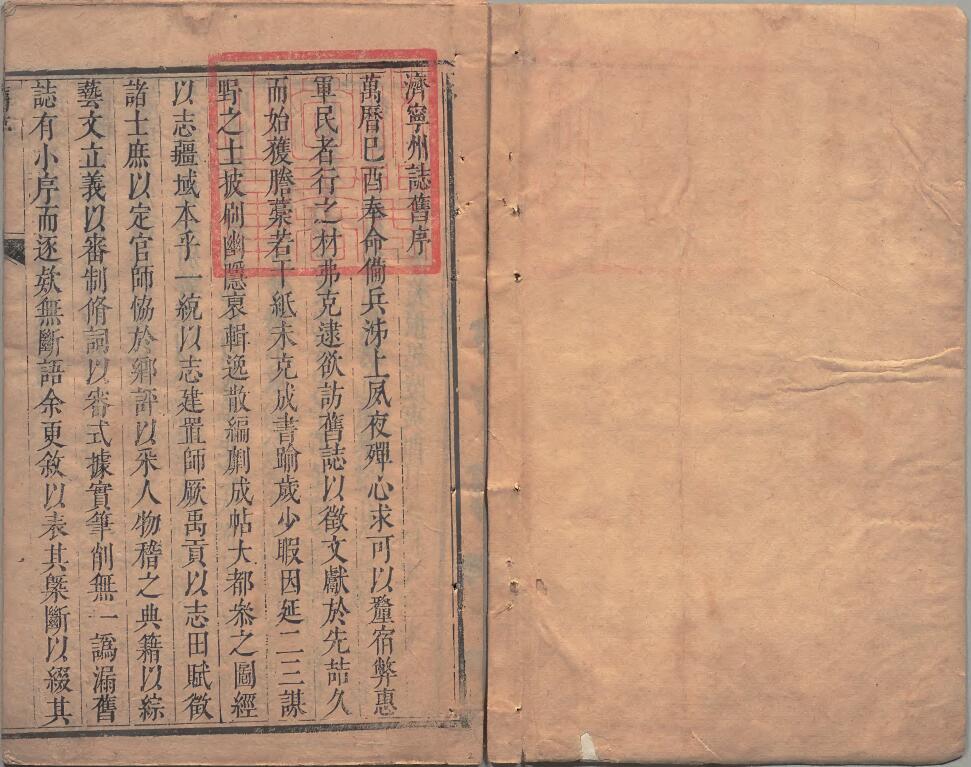 濟寧州誌舊序
萬曆己酉奉命備兵泲上夙夜殫心求可以釐宿弊惠
軍民者行之材弗克逮欲訪舊誌以徵文獻於先喆久
而始獲謄藁若干紙未克成書踰歲少暇因延二三謀
野之士披刷幽隱裒輯逸散編劘成帖大都叅之圖經
以志疆域本乎一統以志建置師厥禹貢以志田賦徵
諸士庶以定官師協於鄉評以釆人物稽之典籍以綜
藝文立義以審制脩詞以審式據實筆削無一譌漏舊
誌有小序而逐欵無斷語余更敘以表其槩斷以綴其